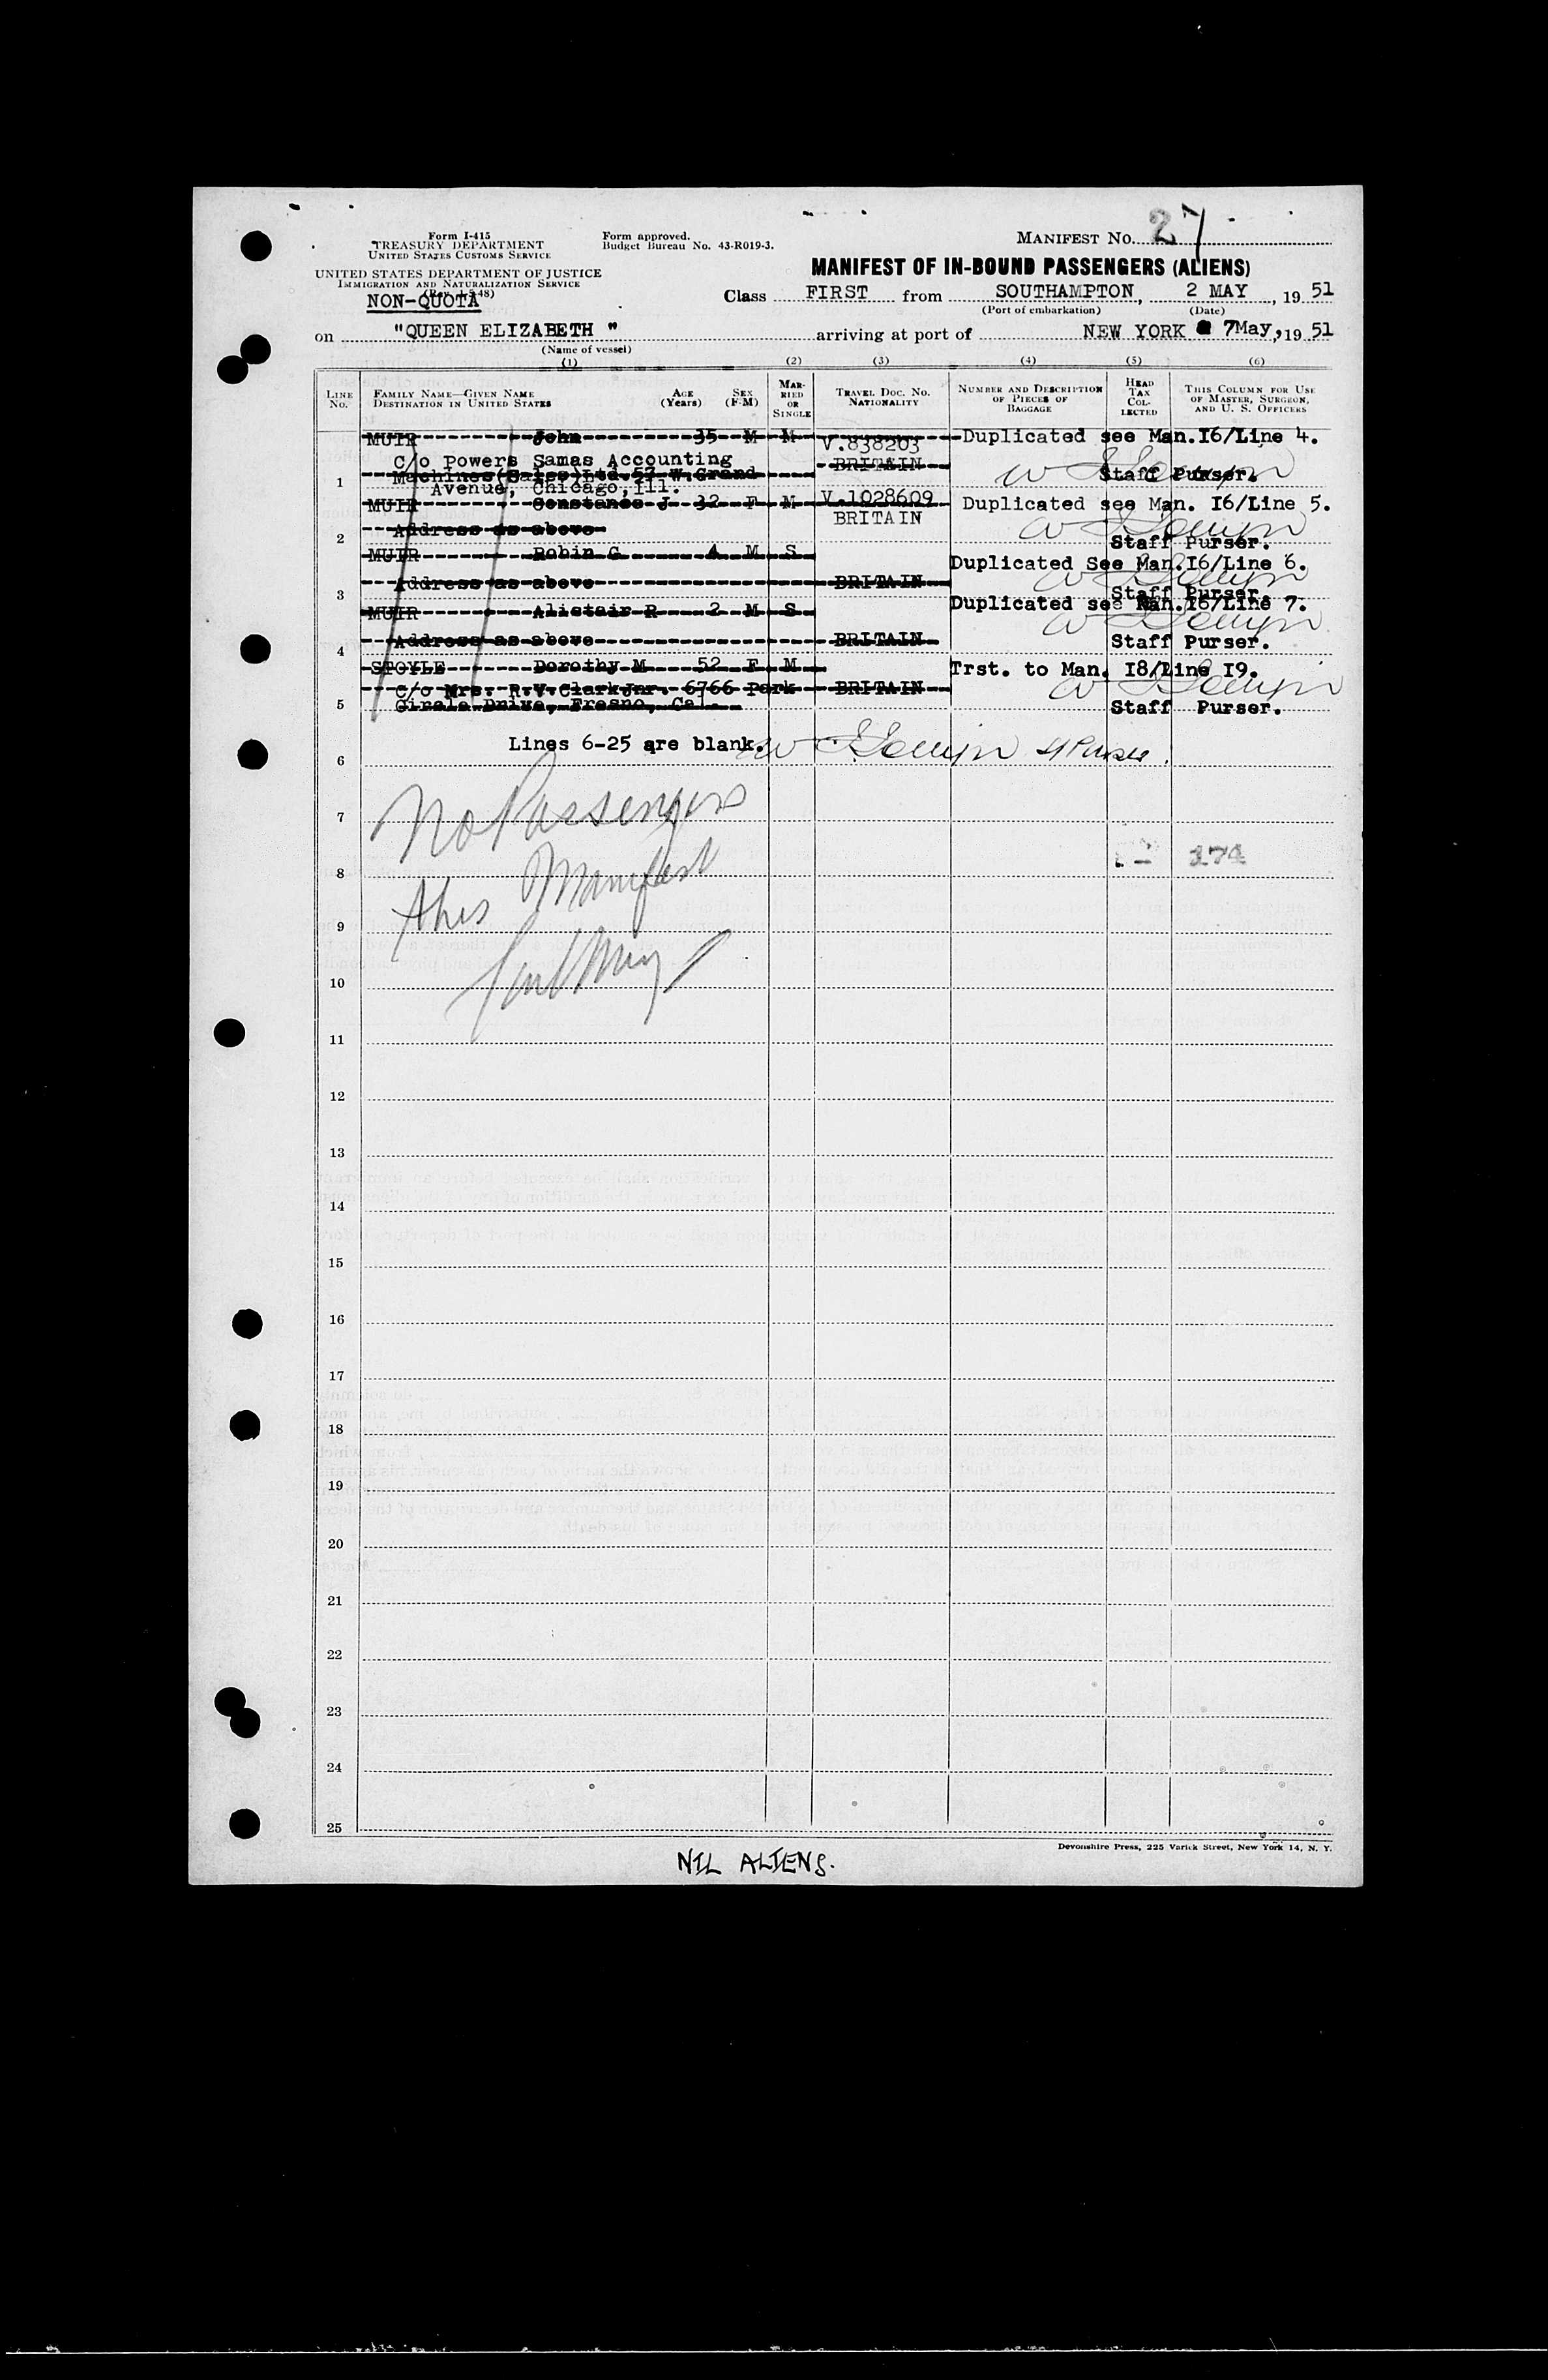 Form I-415
TREASURY DEPARTMENT
UNITED STATES CUSTOMS SERVICE
Form approved.
Budget Bureau No. 43-R019-3.
MANIFEST No. 27
UNITED STATES DEPARTMENT OF JUSTICE
IMMIGRATION AND NATURALIZATION SERVICE
MANIFEST OF IN-BOUND PASSENGERS (ALIENS)
NON-QUOTA
Class FIRST from SOUTHAMPTON, 2 MAY, 19 51
(Port of embarkation) (Date)
on "QUEEN ELIZABETH" arriving at port of NEW YORK 7May, 19 51
(Name of vessel)
(1) (2) (3) (4) (5) (6)
LINE No. FAMILY NAME—GIVEN NAME DESTINATION IN UNITED STATES AGE (Years) SEX (F-M) MARRIED OR SINGLE TRAVEL DOC. NO. NATIONALITY NUMBER AND DESCRIPTION OF PIECES OF BAGGAGE HEAD TAX COLLECTED THIS COLUMN FOR USE OF MASTER, SURGEON, AND U. S. OFFICERS
MUIR John 35 M M V.838203 Duplicated see Man.I6/Line 4.
C/o Powers Samas Accounting BRITAIN
1 Machines(Sales)Ltd.57 W.Grand Staff Purser.
Avenue, Chicago,Ill.
MUIR Constance J 32 F M V.1028609 Duplicated see Man. I6/Line 5.
BRITAIN
2 Address as above Staff Purser.
MUIR Robin G 4 M S Duplicated See Man.I6/Line 6.
3 Address as above BRITAIN Staff Purser.
MUIR Alistair R 2 M S Duplicated see Man.I6/Line 7.
4 Address as above BRITAIN Staff Purser.
STOYLE Dorothy M 52 F M Trst. to Man. I8/Line I9.
C/o Mrs. R.V.ClarkJnr. 6766 Park BRITAIN
5 Girale Drive, Fresno, Cal. Staff Purser.
Lines 6-25 are blank.
6
No Passengers
7
this Manifest
8 174
9
10
11
12
13
14
15
16
17
18
19
20
21
22
23
24
25
Devonshire Press, 225 Varick Street, New York 14, N. Y.
NIL ALIENS.